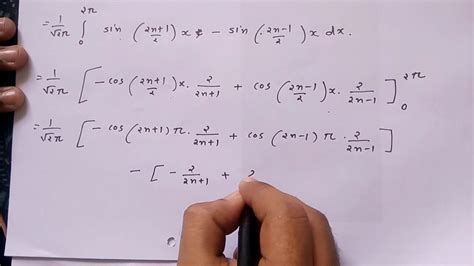 = 1/√2π ∫₀^2π sin (2n+1/2) x - sin (2n-1/2) x dx.
= 1/√2π [ -cos (2n+1/2) x · 2/2n+1 + cos (2n-1/2) x · 2/2n-1 ]₀^2π
= 1/√2π [ -cos (2n+1) π · 2/2n+1 + cos (2n-1) π · 2/2n-1 ]
- [ - 2/2n+1 + 2